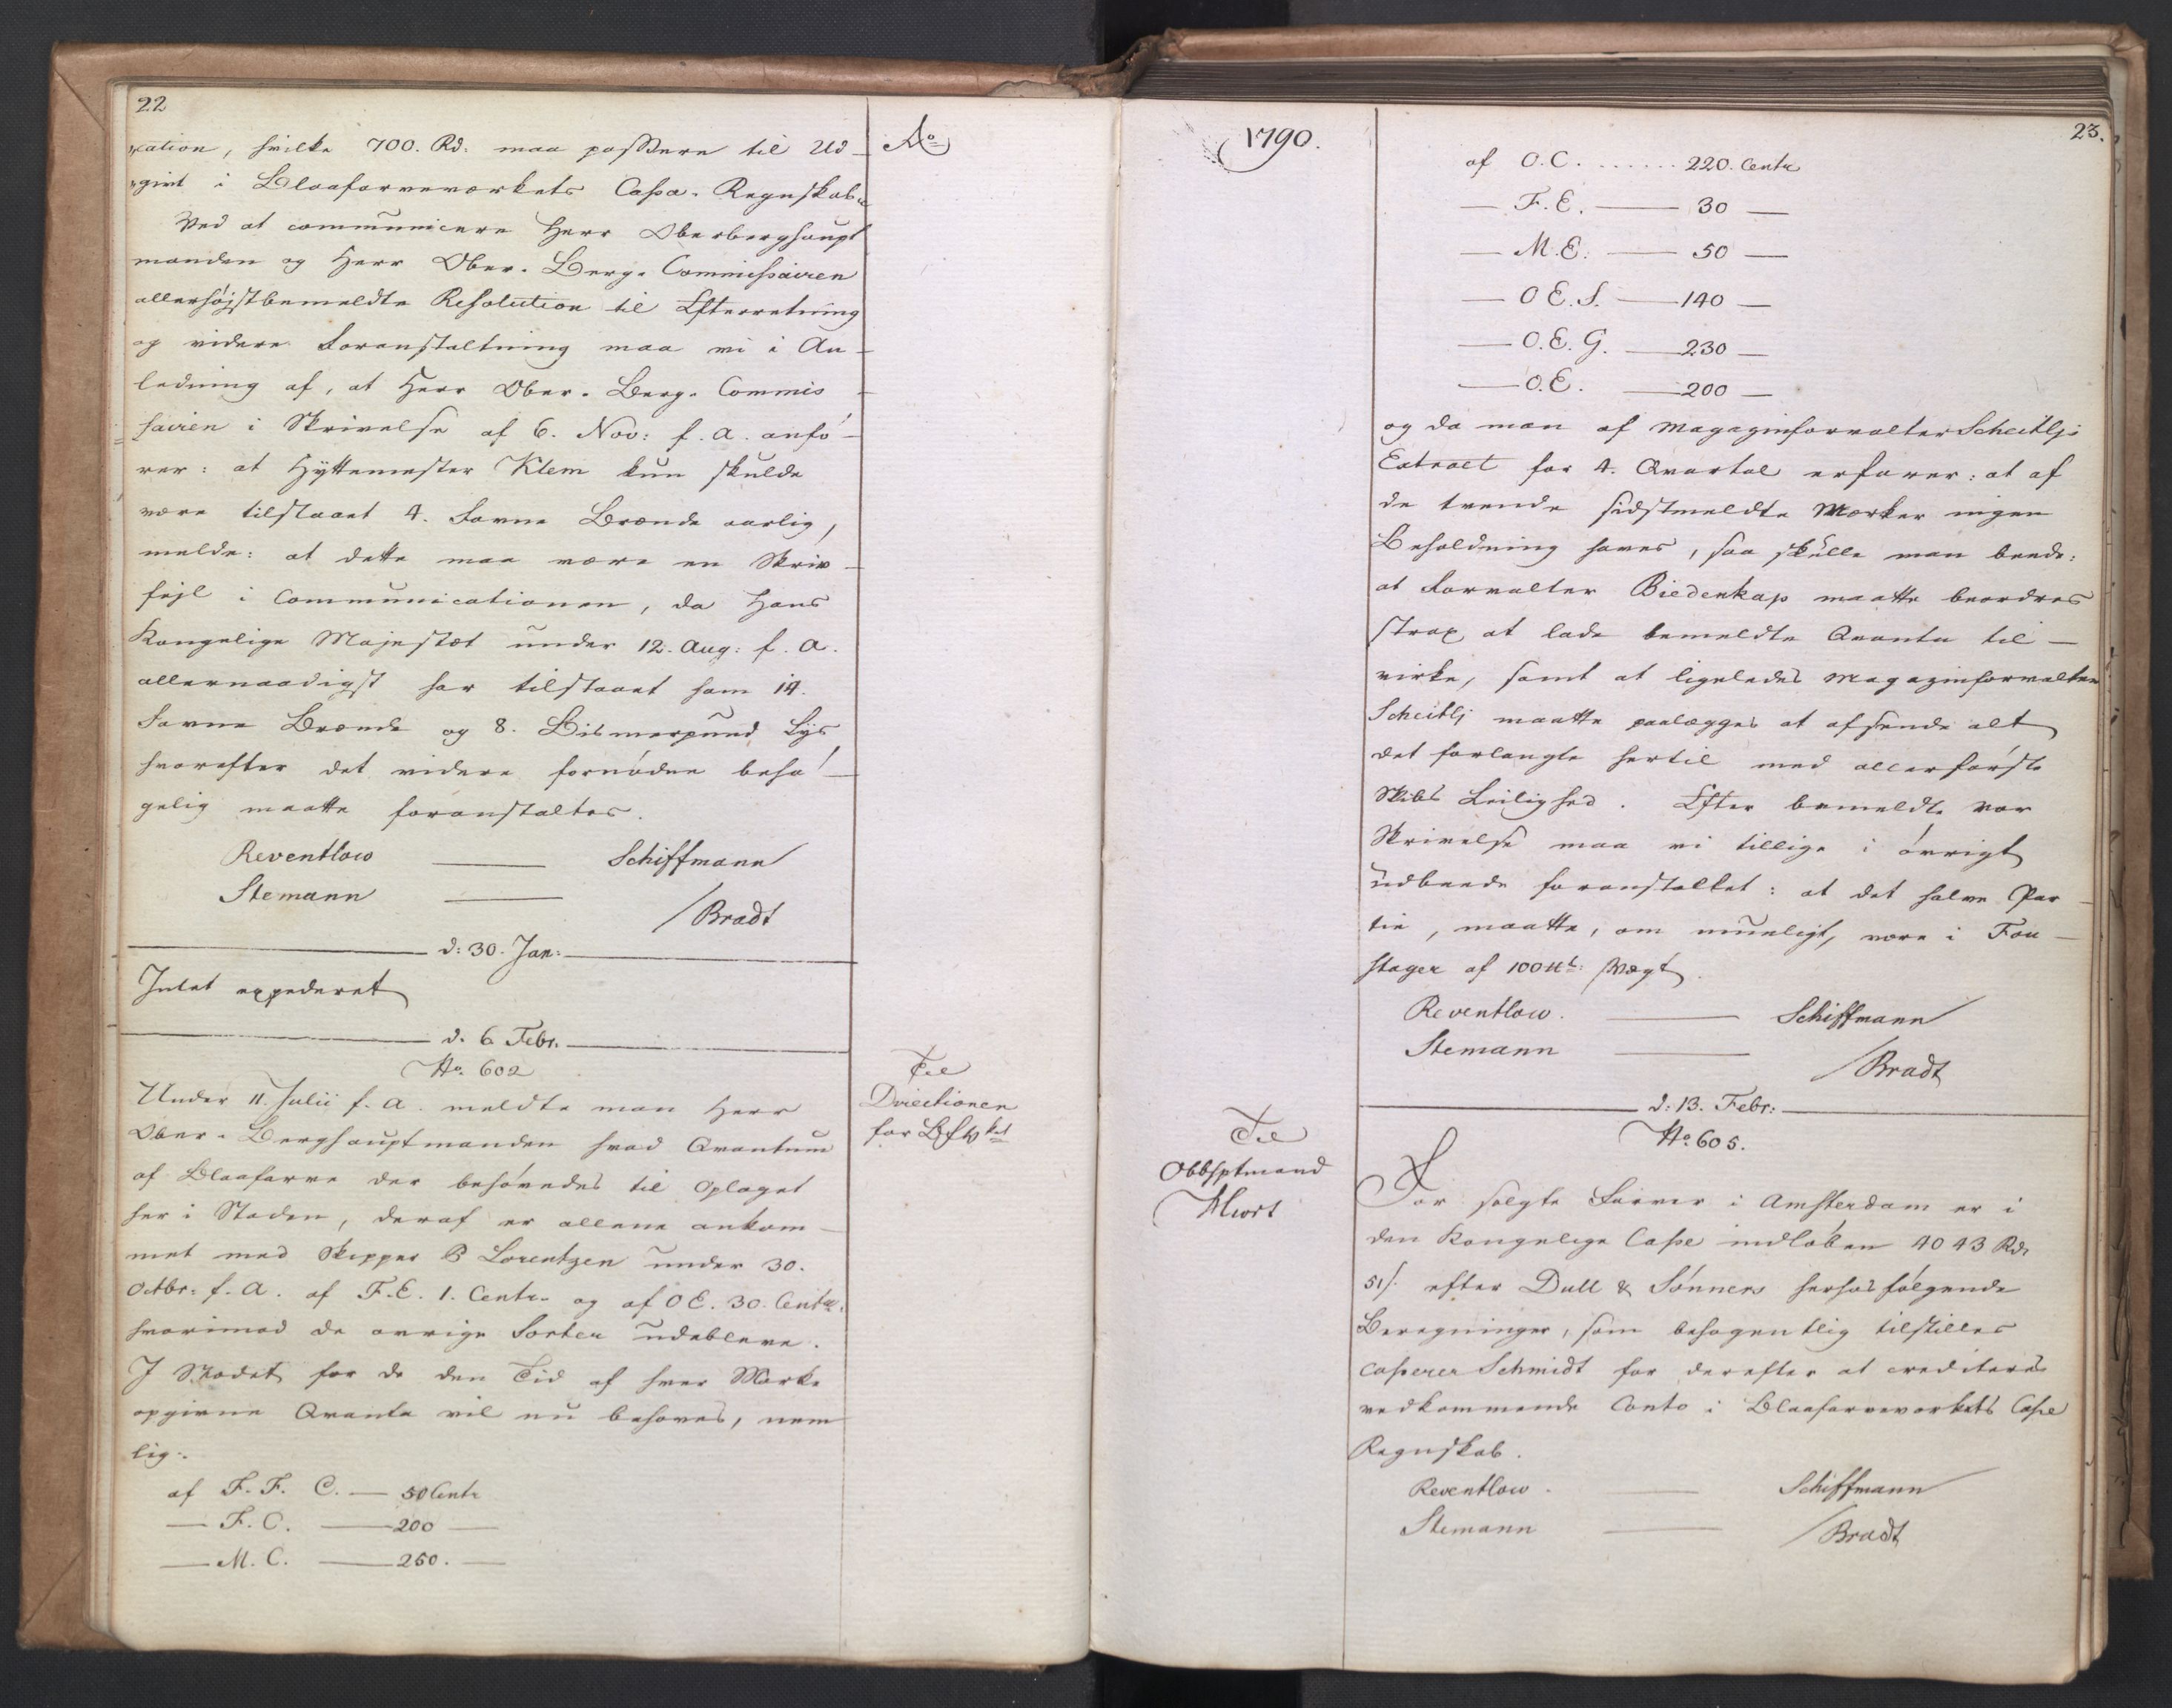 22
cation, hvilke 700. Rd: maa passere til Ud-
givt i Blaafarveverkets Cassa-Regnskab.
Ved at communicere Herr Oberberghaupt
manden og Herr Ober-Berg-Commissairen
allerhøjstbemeldte Resolution til Efterretning
og videre Foranstaltning maa vi i An-
ledning af, at Herr Ober-Berg-Commis-
sairen i Skrivelse af 6. Nov: f. A. anfø-
rer: at Hyttemester Klem kun skulde
være tilstaaet 4. Favne Brænde aarlig,
melde: at dette maa være en Skriv-
fejl i Communicationen, da Hans
Kongelige Majestæt under 12. Aug: f. A.
allernaadigst har tilstaaet ham 14.
Favne Brænde og 8. Bismerpund Lys
hvorefter det videre fornødne behø-
gelig maatte foranstaltes.
Reventlow — Schiffmann
Stemann — /Bradt
d: 30. Jan:
Intet expederet
d. 6 Febr.
No. 602
Til
Directionen
for Bfwket
Under 11. Julii f. A. meldte man Herr
Ober-Berghauptmanden hvad Qvantum
af Blaafarve der behøvedes til Oplaget
her i Staden, deraf er allene ankom-
met med Skipper B Lorentzen under 30.
Octbr: f. A. af F.E. 1. Centr. og af O E. 30. Centr.
hvorimod de øvrige Sorter udebleve.
I Stædet for de den Tid af hver Mærke
opgivne Qvanta vil nu behøves, nem
lig:
af F. F. C. — 50 Centr
— F. C. — 200 —
— M. C. — 260. —
Ao
1790.
23.
af O. C. ...... 220. Centr
— F. E. — 30 —
— M. E. — 50 —
— O E. S. — 140 —
— O. E. G. — 230 —
— O. E. — 200 —
og da man af Magazinforvalter Scheitljs
Extract for 4. Qvartal erfarer: at af
de trende sidstmeldte Mærker ingen
Beholdning haves, saa skulle man beede:
at Forvalter Biedenkap maatte beordres
strax at lade bemeldte Qvanta til-
virke, samt at ligeledes Magazinforvalter
Scheitlj maatte paalægges at afsende alt
det forlangte hertil med allerførste
Skibs Leilighed. Efter bemeldte vor
Skrivelse maa vi tillige i øvrigt
udbeede foranstaltet: at det halve Par-
tie, maatte, om mueligt, være i Fou-
stager af 100 ℔: Vægt.
Reventlow. — Schiffmann
Stemann — /Bradt
d: 13. Febr:
No. 605.
Til
Obbhptmand
Hiort
For solgte Farver i Amsterdam er i
den Kongelige Casse indløben 4043 Rd
51/. efter Dull & Sønners herhos følgende
Beregninger, som behagentlig tilstilles
Casserer Schmidt for derefter at crediteres
vedkommende Conto i Blaafarveverkets Casse
Regnskab.
Reventlow. — Schiffmann
Stemann — /Bradt